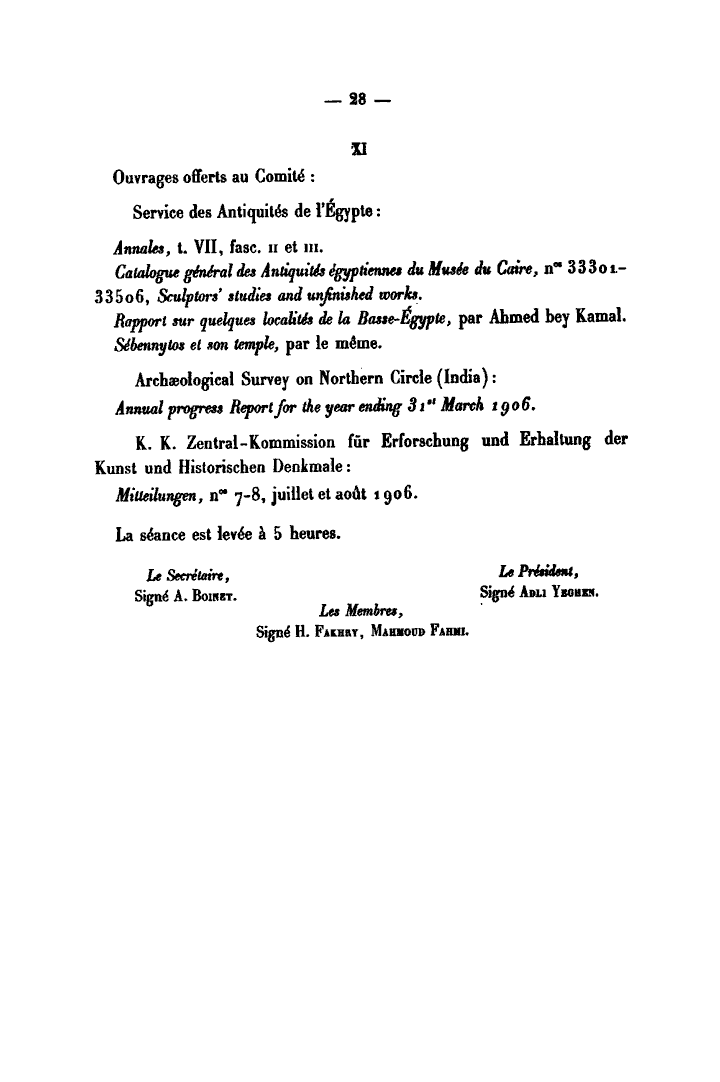 — 28 —
XI
Ouvrages offerts au Comité :
Service des Antiquités de l'Égypte :
Annales, t. VII, fasc. II et III.
Catalogue général des Antiquités égyptiennes du Musée du Caire, nos 33301-
33506, Sculptors' studies and unfinished works.
Rapport sur quelques localités de la Basse-Égypte, par Ahmed bey Kamal.
Sébennytos et son temple, par le même.
Archæological Survey on Northern Circle (India) :
Annual progress Report for the year ending 31st March 1906.
K. K. Zentral-Kommission für Erforschung und Erhaltung der
Kunst und Historischen Denkmale :
Mitteilungen, nos 7-8, juillet et août 1906.
La séance est levée à 5 heures.
Le Secrétaire,
Signé A. Boinet.
Le Président,
Signé Adli Yeghen.
Les Membres,
Signé H. Fakhry, Mahmoud Fahmi.